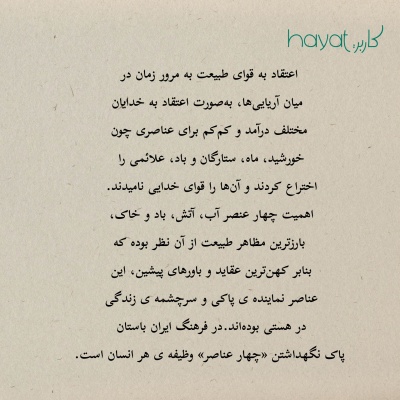 کاربر: hayat
اعتقاد به قوای طبیعت به مرور زمان در
میان آریایی‌ها، به‌صورت اعتقاد به خدایان
مختلف درآمد و کم‌کم برای عناصری چون
خورشید، ماه، ستارگان و باد، علائمی را
اختراع کردند و آن‌ها را قوای خدایی نامیدند.
اهمیت چهار عنصر آب، آتش، باد و خاک،
بارزترین مظاهر طبیعت از آن نظر بوده که
بنابر کهن‌ترین عقاید و باورهای پیشین، این
عناصر نماینده ی پاکی و سرچشمه ی زندگی
در هستی بوده‌اند.در فرهنگ ایران باستان
پاک نگهداشتن «چهار عناصر» وظیفه ی هر انسان است.